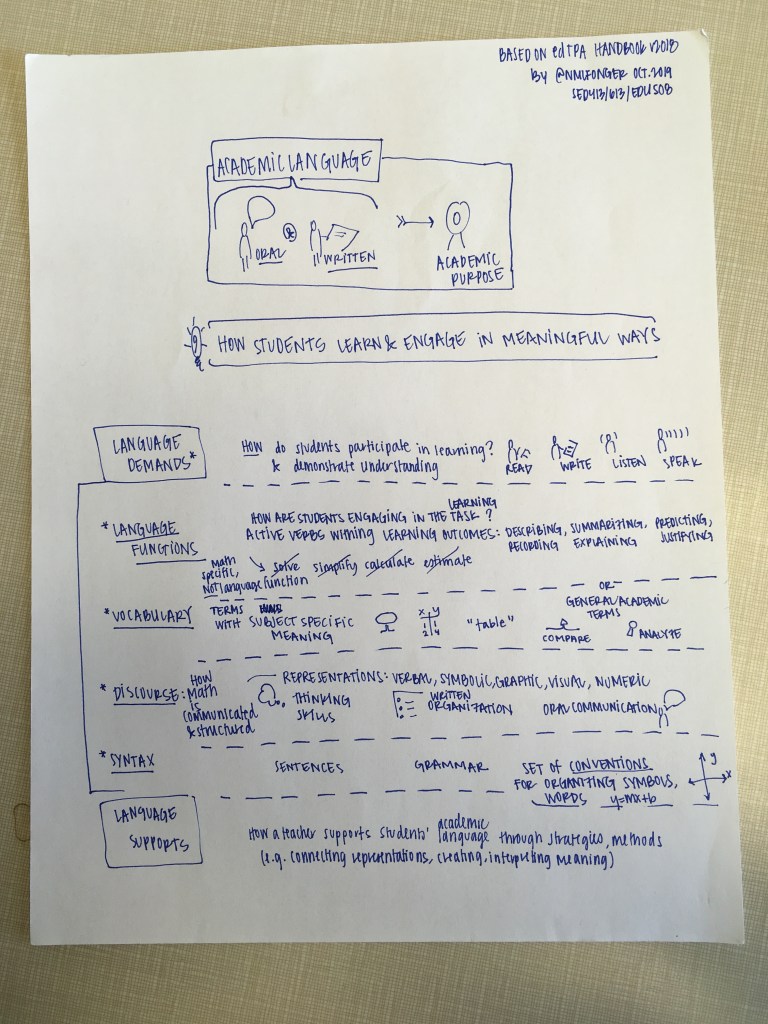 BASED ON edTPA HANDBOOK v2018
BY @NMLFONGER OCT. 2019
SED413/613/EDU508
ACADEMIC LANGUAGE
ORAL & WRITTEN
ACADEMIC
PURPOSE
HOW STUDENTS LEARN & ENGAGE IN MEANINGFUL WAYS
LANGUAGE
DEMANDS*
HOW do students participate in learning?
& demonstrate understanding
READ WRITE LISTEN SPEAK
* LANGUAGE
FUNCTIONS
HOW ARE STUDENTS ENGAGING IN THE LEARNING TASK?
ACTIVE VERBS WITHING LEARNING OUTCOMES: DESCRIBING, SUMMARIZING, PREDICTING,
RECORDING EXPLAINING JUSTIFYING
Math
specific,
NOT language function
solve simplify calculate estimate
* VOCABULARY
TERMS
WITH SUBJECT SPECIFIC
MEANING
x y
1 1
2 4
"table"
OR
GENERAL ACADEMIC
TERMS
COMPARE ANALYZE
* DISCOURSE:
HOW
Math
is
communicated
& structured
REPRESENTATIONS: VERBAL, SYMBOLIC, GRAPHIC, VISUAL, NUMERIC
THINKING
SKILLS
WRITTEN
ORGANIZATION
ORAL COMMUNICATION
* SYNTAX
SENTENCES GRAMMAR
SET OF CONVENTIONS
FOR ORGANIZING SYMBOLS,
WORDS y=mx+b
y
x
LANGUAGE
SUPPORTS
How a teacher supports students' academic language through strategies, methods
(e.g. connecting representations, creating, interpreting meaning)